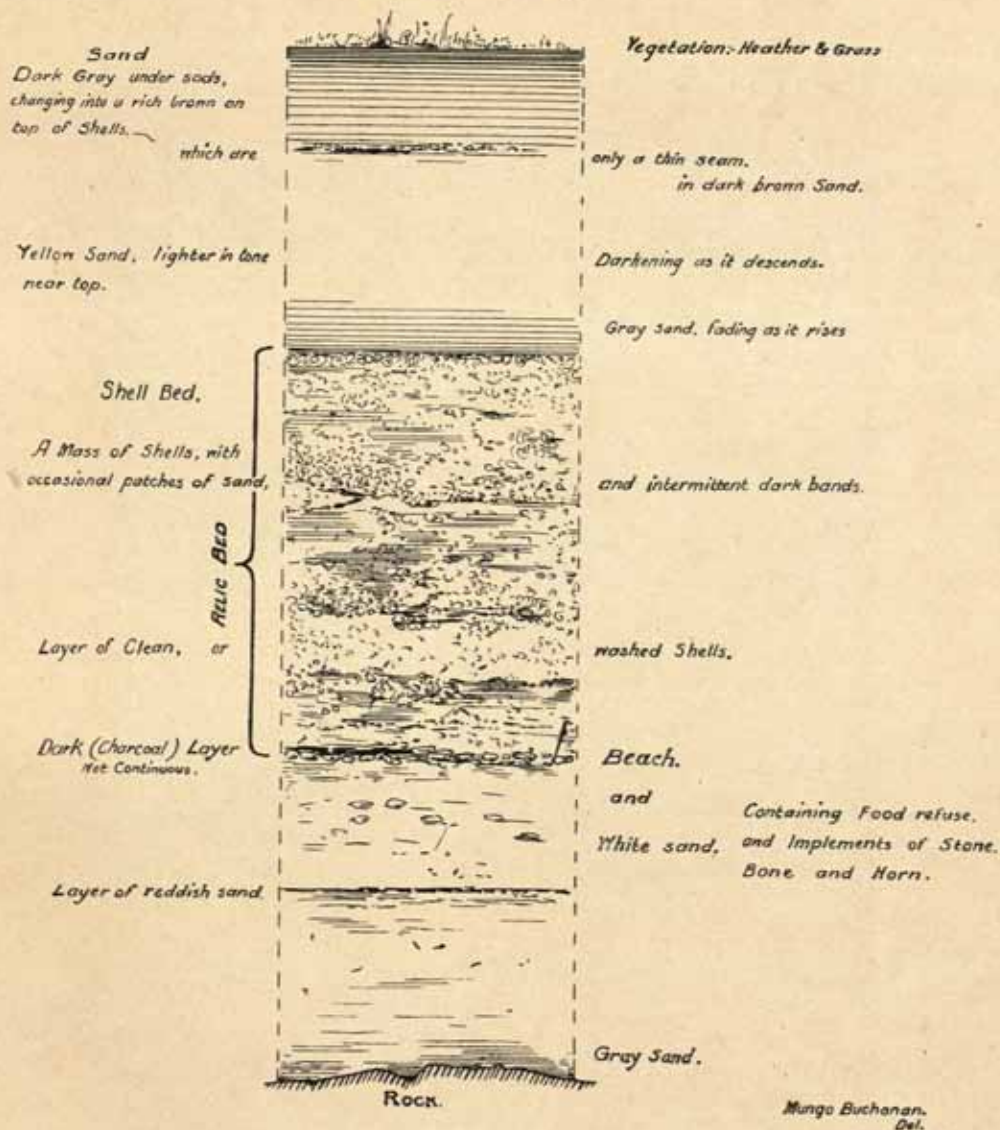 Sand
Dark Gray under sods,
changing into a rich brown on
top of Shells.
which are
only a thin seam.
in dark brown Sand.
Vegetation:- Heather & Grass
Yellow Sand, lighter in tone
near top.
Darkening as it descends.
Gray sand, fading as it rises
Shell Bed.
A Mass of Shells, with
occasional patches of sand,
and intermittent dark bands.
RELIC BED
Layer of Clean, or
washed Shells.
Dark (Charcoal) Layer
Not Continuous.
Beach.
and
White sand,
Containing Food refuse,
and Implements of Stone.
Bone and Horn.
Layer of reddish sand.
Gray Sand.
ROCK.
Mungo Buchanan.
Del.